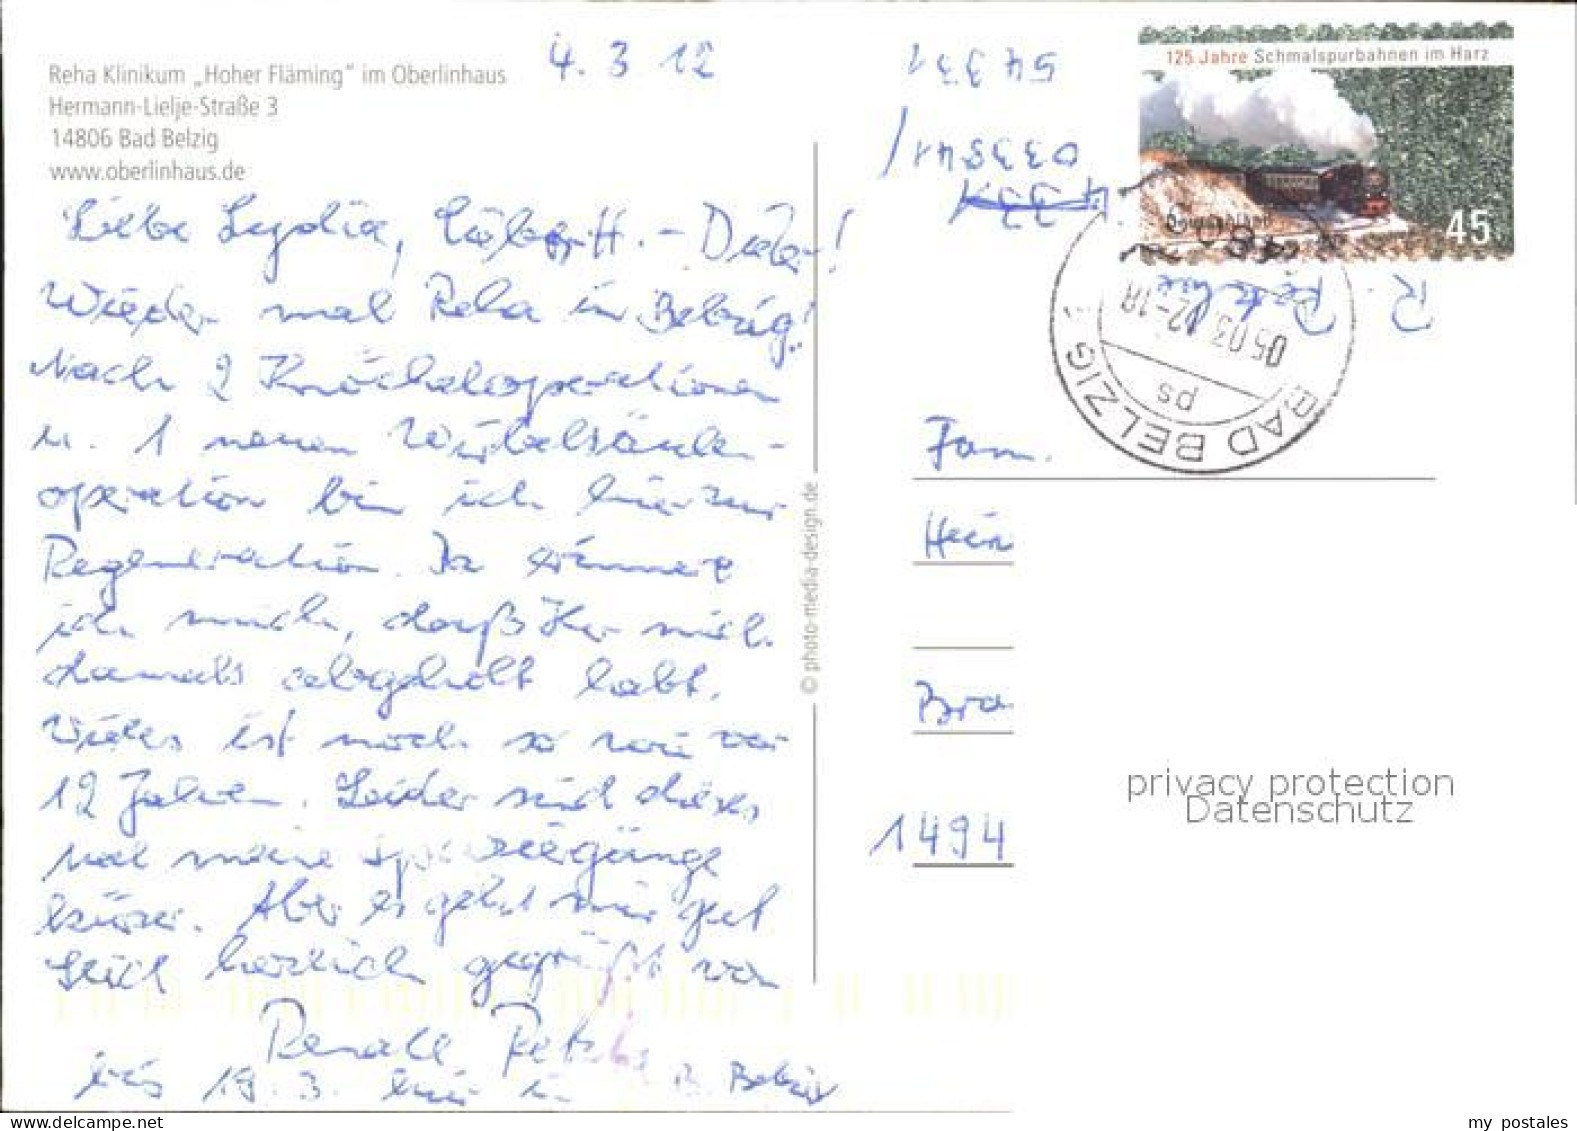 Reha Klinikum „Hoher Fläming“ im Oberlinhaus
Hermann-Lielje-Straße 3
14806 Bad Belzig
www.oberlinhaus.de
4. 3 12
Liebe Lydia, lieber H. - Dieter!
Wieder mal Reha in Belzig!
Nach 2 Knöcheloperationen
u. 1 neuen Wirbelsäulen-
operation bin ich hier zur
Regeneration. Da erinnere
ich mich, daß Ihr mich
damals abgeholt habt.
Vieles ist noch so wie vor
12 Jahren. Leider sind dieses
mal meine Spaziergänge
kürzer. Aber es geht mir gut
Seid herzlich gegrüßt von
Renate
bis 19. 3. hier in Belzig
© photo-media-design.de
54331
033841/
R.
125 Jahre Schmalspurbahnen im Harz
Deutschland
45
BAD BELZIG
05.03.12-18
ps
Fam.
Hein
Bra
1494
privacy protection
Datenschutz
www.delcampe.net
my_postales